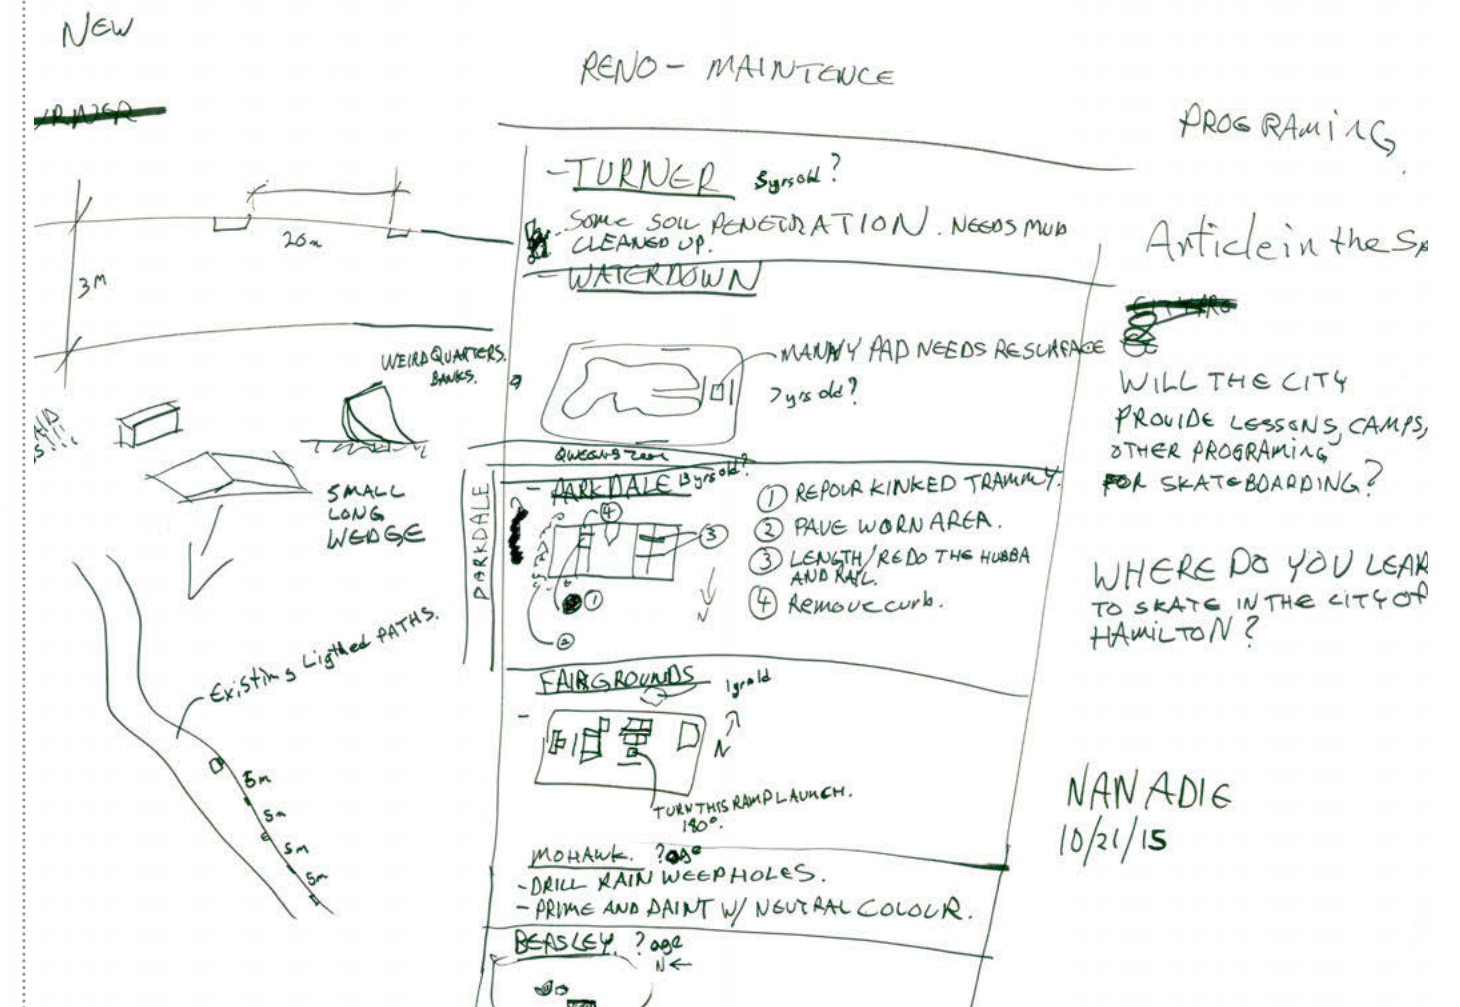 NEW
20m
3M
WEIRD QUARTERS.
BANKS.
SMALL
LONG
WEDGE
Existing Ligthed PATHS.
5m
5m
5m
5m
RENO - MAINTENCE
- TURNER 5yrs old?
SOME SOIL PENETRATION. NEEDS MUD
CLEANED UP.
- WATERDOWN
MANNY PAD NEEDS RESURFACE
7yrs old?
PARKDALE
- PARKDALE 13 yrs old?
4
3
1
2
N
① REPOUR KINKED TRAMMY.
② PAVE WORN AREA.
③ LENGTH/REDO THE HUBBA
AND RAIL.
④ Remove curb.
FAIRGROUNDS 1yr old
N
TURN THIS RAMP LAUNCH.
180°.
MOHAWK. ? age
- DRILL RAIN WEEPHOLES.
- PRIME AND PAINT W/ NEUTRAL COLOUR.
BEASLEY. ? age
N ←
PROGRAMING.
Article in the Sp
WILL THE CITY
PROVIDE LESSONS, CAMPS,
OTHER PROGRAMING
FOR SKATEBOARDING?
WHERE DO YOU LEAR
TO SKATE IN THE CITY OF
HAMILTON?
NAN ADIE
10/21/15